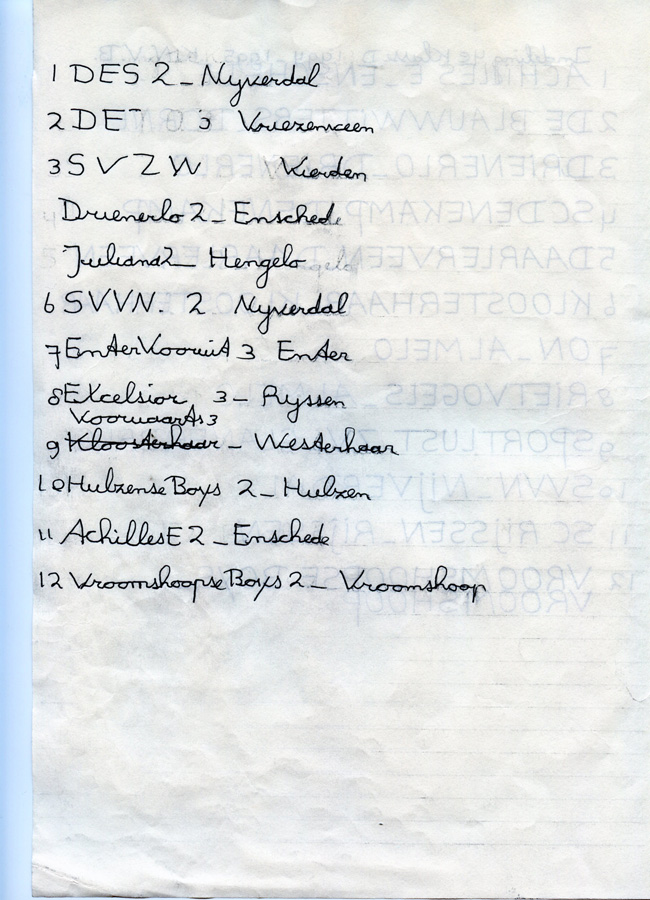 1 DES 2 - Nyverdal
2 DETO 3 Vriezenveen
3 SVZW Wierden
Drienerlo 2 - Enschede
Juliana 2 Hengelo
6 SVVN. 2 Nyverdal
7 Enter Vooruit 3 Enter
8 EXcelsior 3 - Ryssen
Voorwaarts 3
9 Kloosterhaar - Westerhaar
10 Hulzense Boys 2 - Hulzen
11 Achilles E 2 - Enschede
12 Vroomshoopse Boys 2 - Vroomshoop